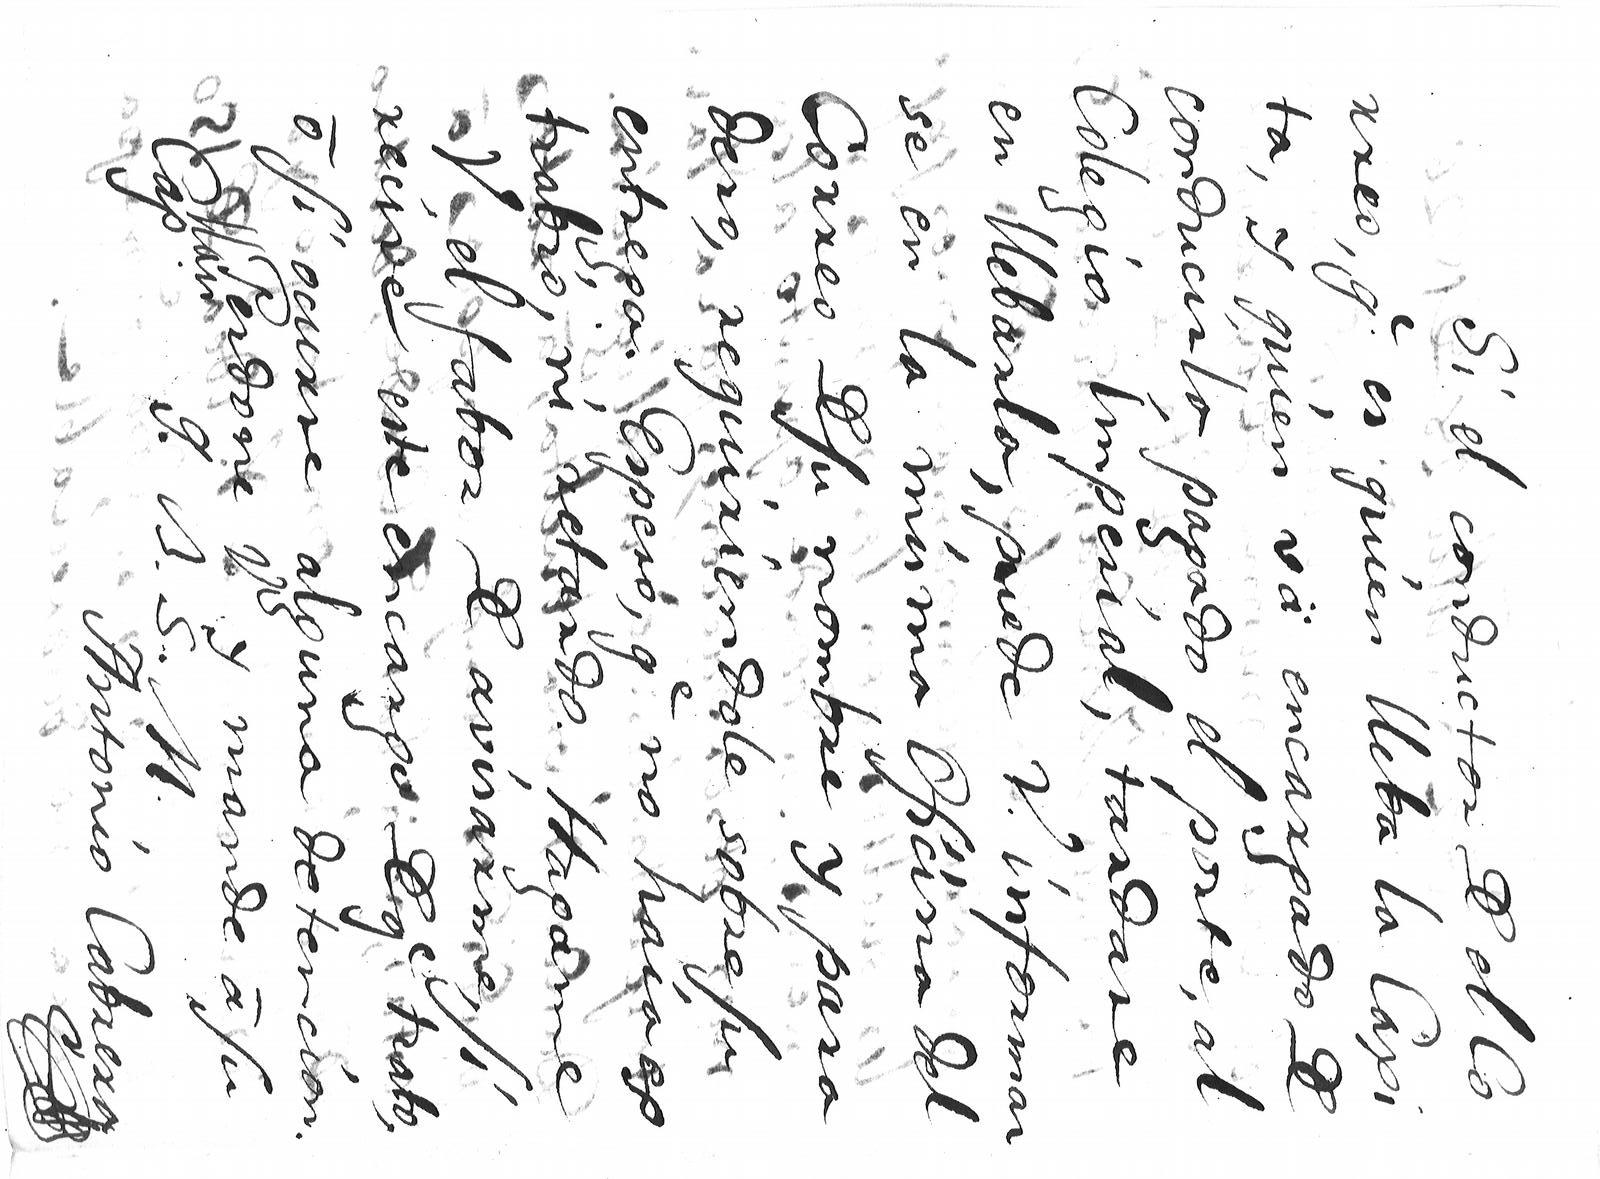 Si el conductor del Co
rreo, q.e es quien lleba la Caxi
ta, y quien vá encargado de
conducirla pagado el porte, al
Colegio Imperial, tardare
en llebarla, puede V. informar
se en la misma Oficina del
Correo de su nombre y para
dero, requiriendole sobre su
entrega. Espero, q.e no havia ep
trabío, ni retardo. Hagame
V. el fabor de avisarme, si
recive este encargo de q.e trato,
ó si ocurre alguna detencion.
Perdone V. y mande á su
Cap.n
q. B. S. M.
Antonio Cabrera